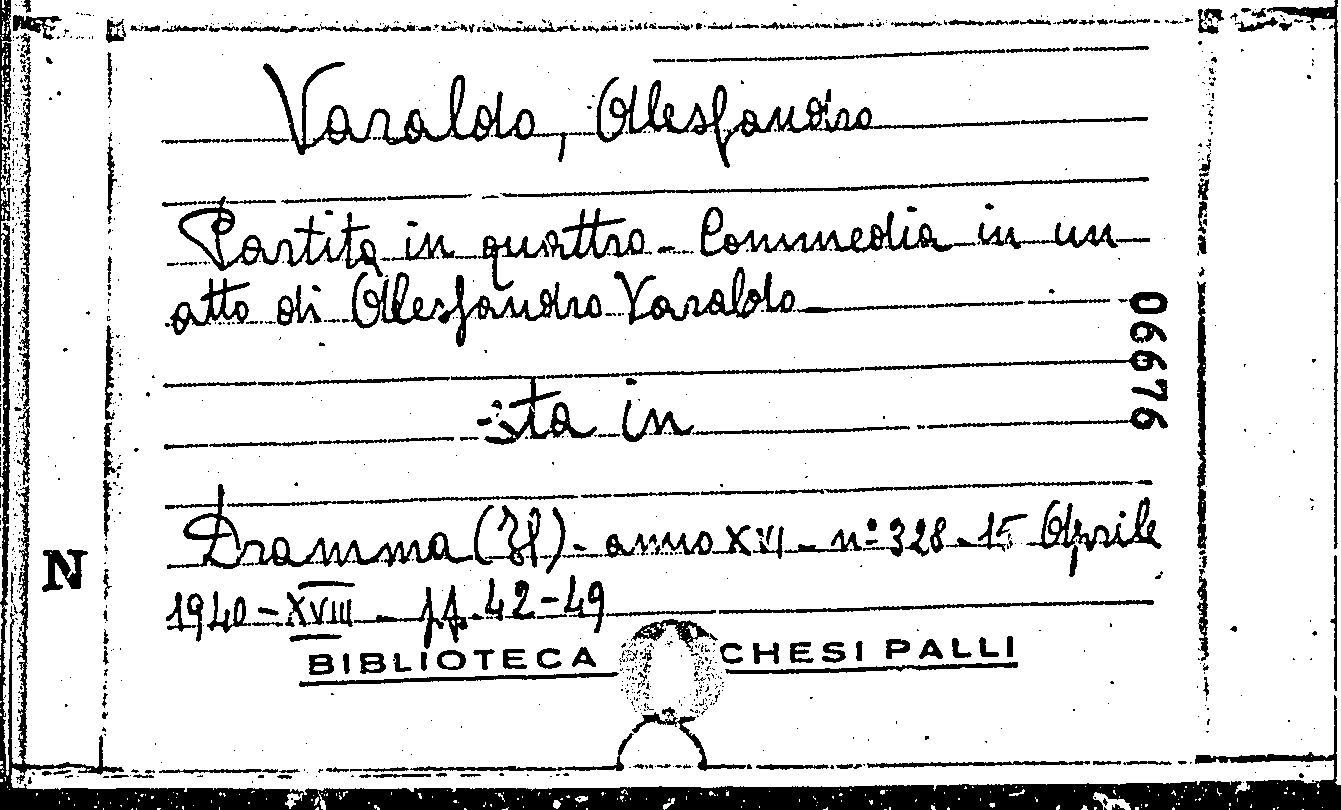 Varaldo, Alessandro
Partita in quattro - Commedia in un
atto di Alessandro Varaldo
sta in
Dramma (Il) - anno XVI - nº 328 - 15 Aprile
1940 - XVIII - pp. 42-49
BIBLIOTECA CHESI PALLI
06676
N